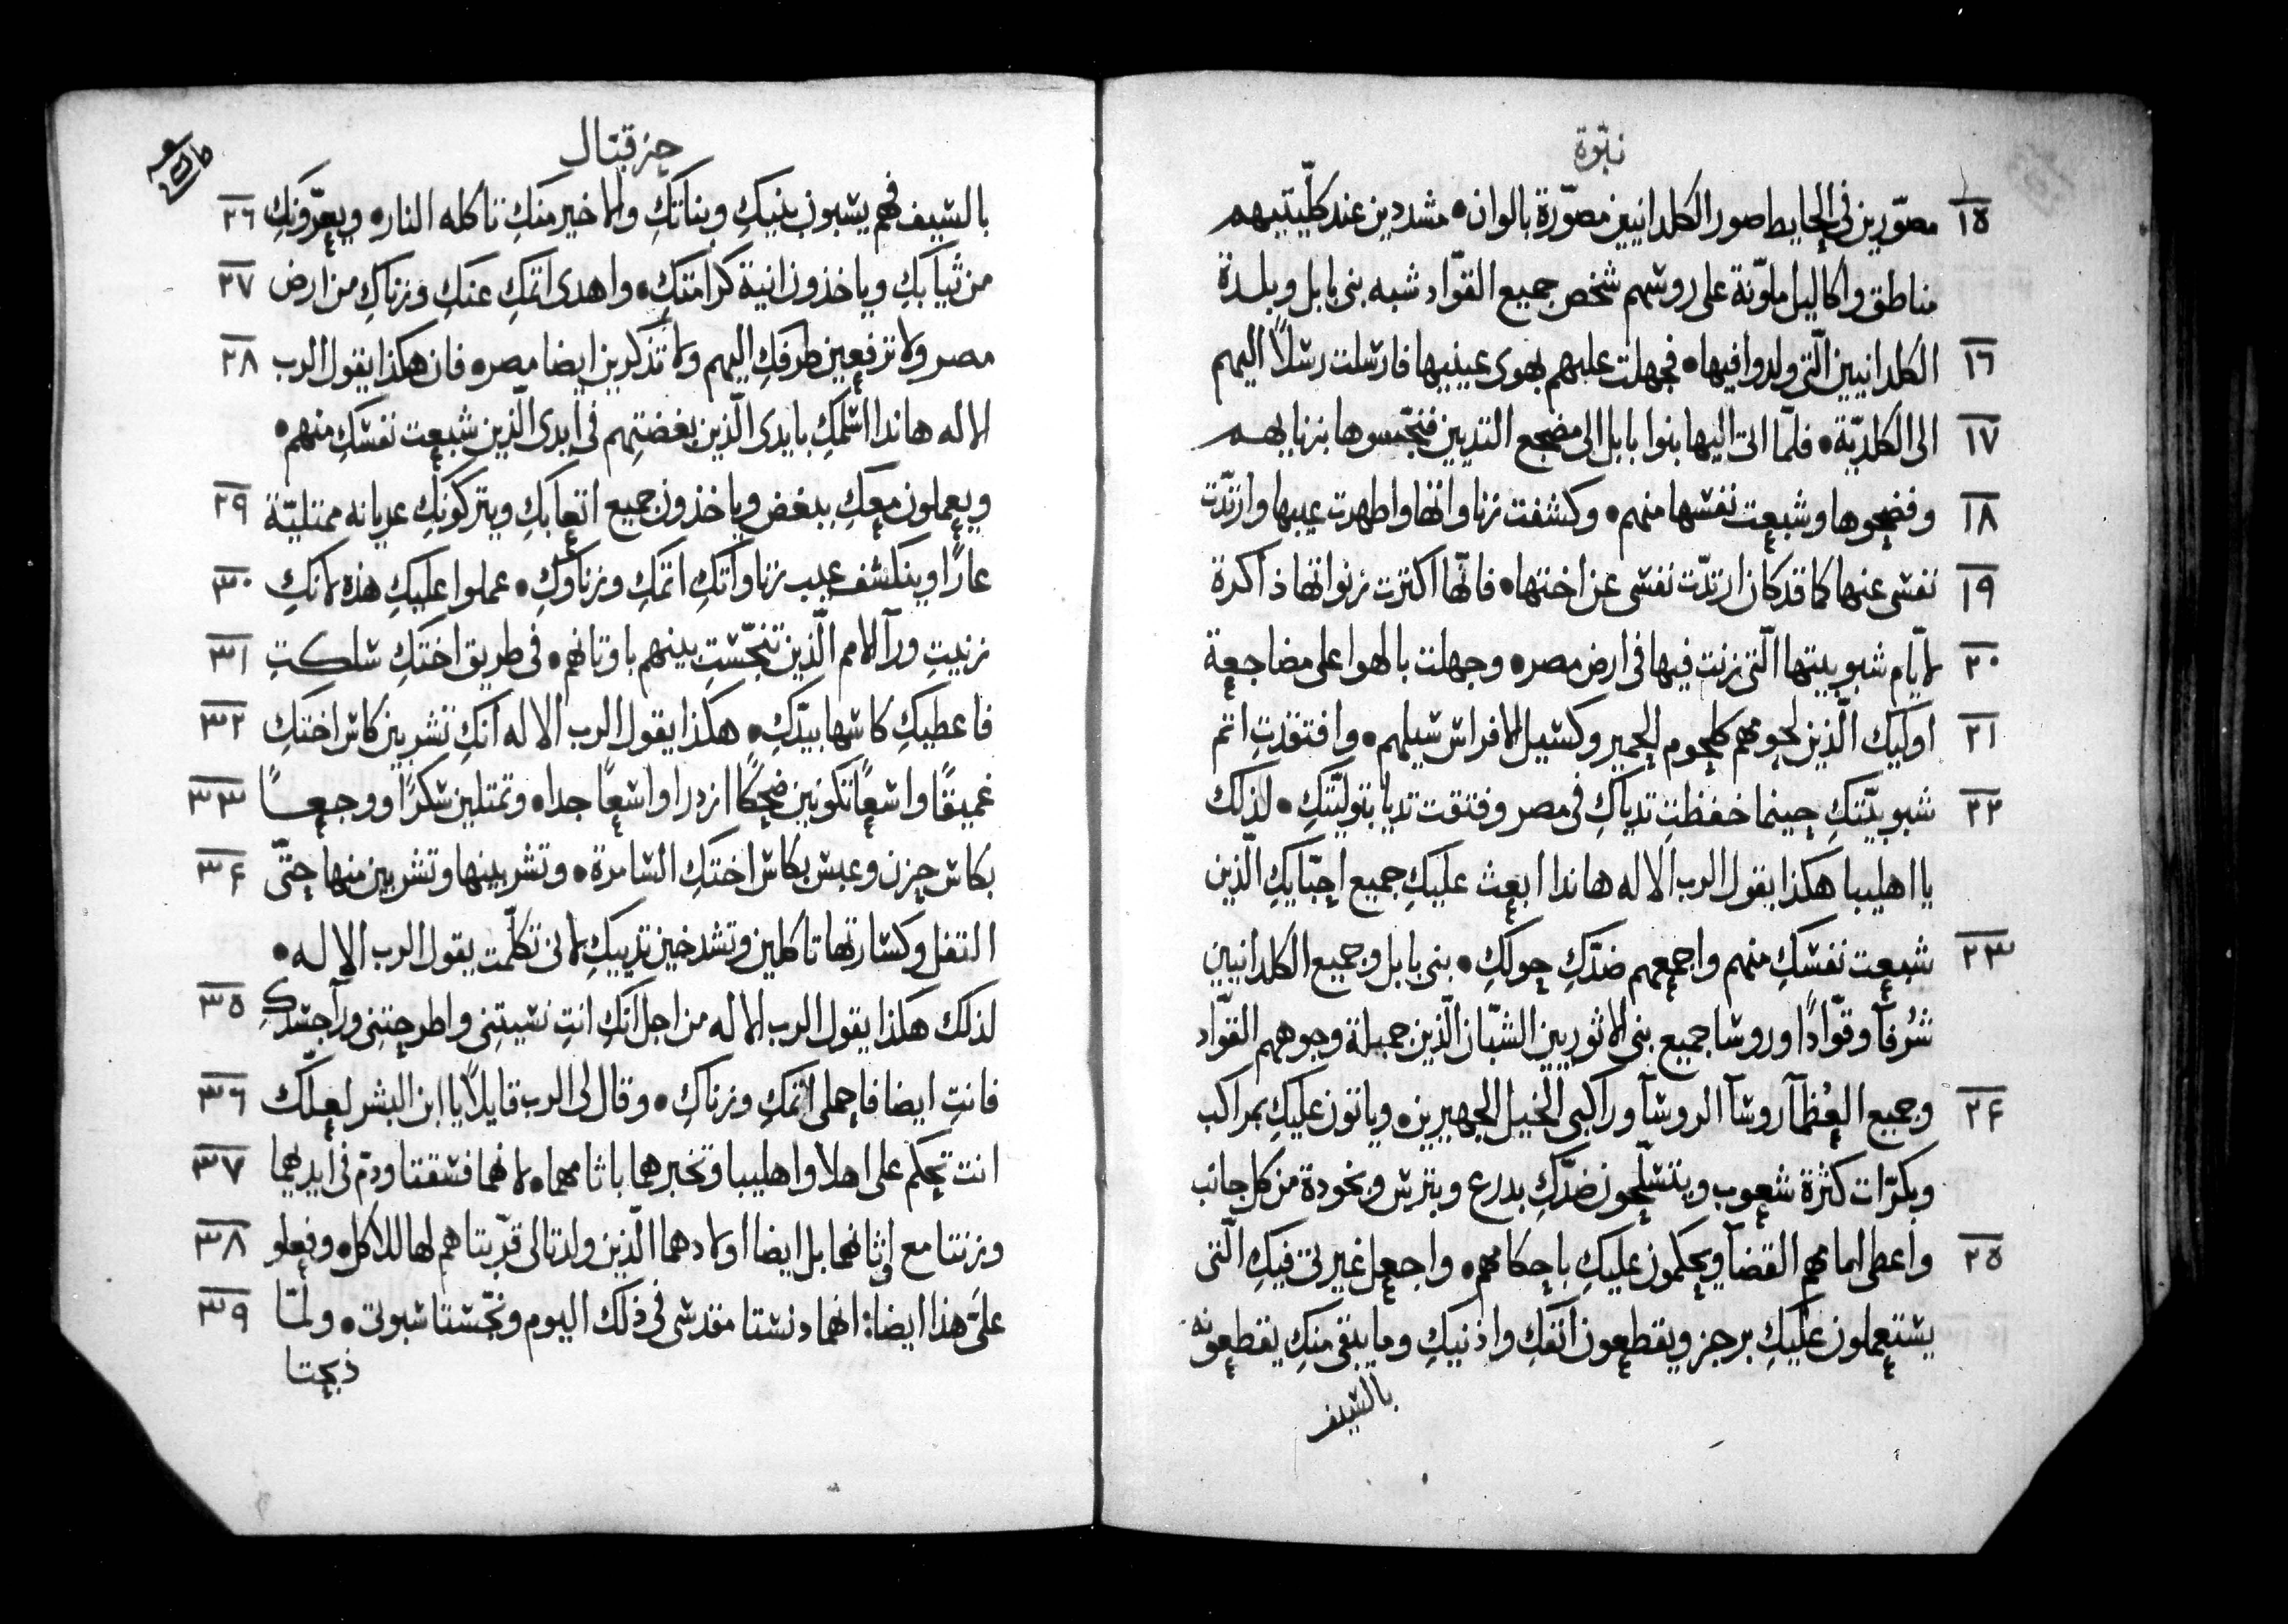 نبّوة
١٥ مصوّرين في الحايط صور الكلدانيين مصوّرة بالوان • مشددين عند كلّيتيهم
مناطق واكاليل ملوّنة على روسهم شخص جميع القوّاد شبه بنى بابل وبلدة
١٦ الكلدانيين الّتى ولدوا فيها • فجهلت عليهم بهوى عينيها فارسلت رسلاً اليهم
١٧ الى الكلديّة • فلمّا اتى اليها بنوا بابل الى مضجع الثديين فنجّسوها بزناهم
١٨ وفضحوها وشبعت نفسها منهم • وكشفت زناواتها واظهرت عيبها وارتدّت
١٩ نفسى عنها كما قد كان ارتدّت نفسى عن اختها • فانّها اكثرت زنواتها ذاكرة
٢٠ لايّام شبوبيتها الّتى زنت فيها فى ارض مصر • وجهلت بالهوا على مضاجعة
٢١ اوليك الّذين لحومهم كلحوم الحمير وكسيل الافراس سيلهم • وافتقدتِ اثم
٢٢ شبوبيّتكِ حينما خفظتِ ثدياكِ فى مصر وفتقت ثديا بتوليّتكِ • لذلك
يا اهليبا هكذا يقول الرب الاله هاندا ابعث عليكِ جميع احبّايكِ الّذين
٢٣ شبعت نفسكِ منهم واجمعهم ضدّكِ حولكِ • بنى بابل وجميع الكلدانيين
شُرفآ وقوّادًا وروسا جميع بنى الاثوريين الشبّان الّذين جميلة وجوههم القوّاد
٢٤ وجميع العُظمآ روسآ الروسآ وراكبى الخيل الجهيرين • وياتون عليكِ بمراكب
وبكرّات كثرة شعوب ويتسلّحون ضدّكِ بدرع وبترس وبخودة من كل جانب
٢٥ واعطى امامهم القضآ ويحكمون عليكِ باحكامهم • واجعل غيرتى فيكِ الّتى
يستعملون عليكِ برجز ويقطعون انفكِ واذنيكِ وما يبقى منكِ يقطعونه
بالسيف
حزقيال
٢٦ بالسيف هم يسبون بنيكِ وبناتكِ والاخير منكِ تاكله النار • ويعرّونكِ
٢٧ من ثيابكِ وياخذون انية كرامتكِ • واهدى اثمكِ عنكِ وزناكِ من ارض
٢٨ مصر ولا ترفعين طرفكِ اليهم ولا تذكرين ايضا مصر • فان هكذا يقول الرب
الاله هاندا اسلمكِ بايدى الّذين بغضتِهم فى ايدى الّذين شبعت نفسكِ منهم •
٢٩ ويعملون معكِ ببغض وياخذون جميع اتعابكِ ويتركونكِ عريانه ممتليّة
٣٠ عارًا وينكشف عيب زناواتكِ اثمكِ وزناوكِ • عملوا عليكِ هذه لانكِ
٣١ زنيتِ ورآ الامم الّذين تنجّستِ بينهم باوثانهم • فى طريق اختكِ سلكتِ
٣٢ فاعطيكِ كاسها بيدّكِ • هكذا يقول الرب الاله انكِ تشربين كاس اختكِ
٣٣ غميقًا واسعًا تكونين ضحكًا ازدرا واسعًا جدا • وتمتلين سكرًا ووجعًا
٣٤ بكاس حزن وعبس بكاس اختكِ السامرة • وتشربينها وتشربين منها حتّى
التفل وكسارتها تاكلين وتشدخين ثدييكِ لانى تكلّمت يقول الرب الاله •
٣٥ لذلك هكذا يقول الرب الاله من اجل انّكِ انتِ نسيتِنى واطرحتِنى ورآ جسدكِ
٣٦ فانتِ ايضا فاحملى اثمكِ وزناكِ • وقال لى الرب قايلاً يا ابن البشر لعلّك
٣٧ انت تحكم على اهلا واهليبا وتخبرهما باثامهما • لانهما فسقتا ودمّ فى ايديهما
٣٨ وزنتا مع اوثانهما بل ايضا اولادهما الّذين ولدتا لى قرّبتاهم لها للاكل • وفعلو
٣٩ علىّ هذا ايضاً: انهما دنستا مقدسى فى ذلك اليوم ونجّستا سبوتى • ولمّا
ذبحتا